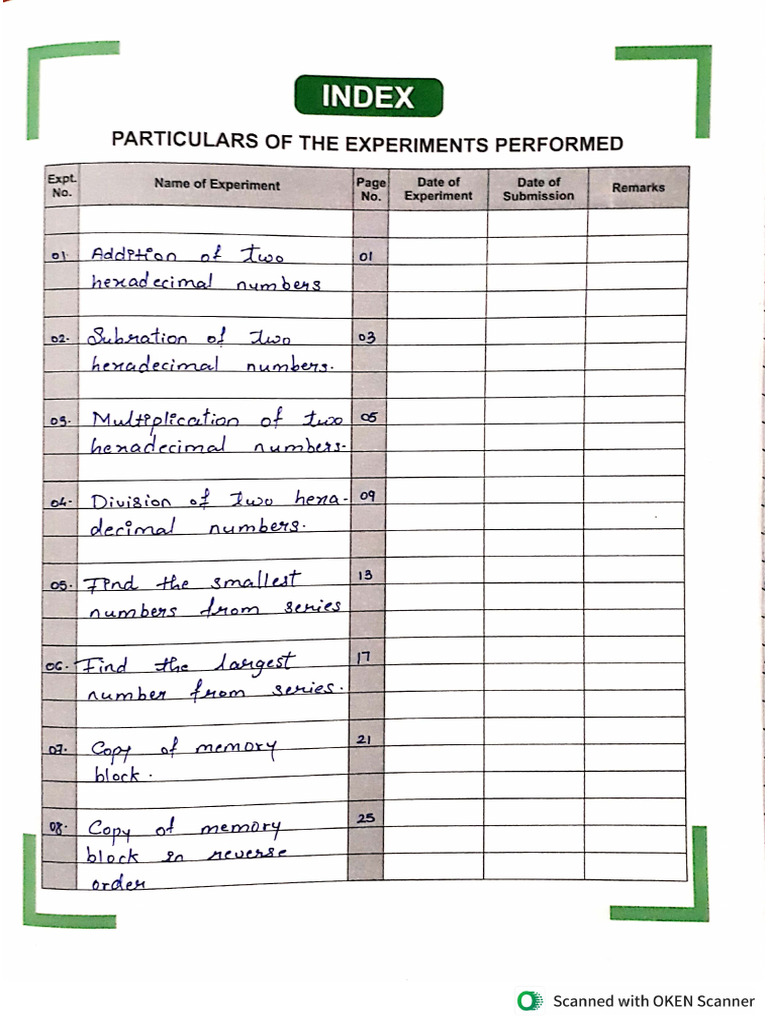 INDEX
PARTICULARS OF THE EXPERIMENTS PERFORMED
Expt. No. Name of Experiment Page No. Date of Experiment Date of Submission Remarks
01. Addition of two 01
hexadecimal numbers
02. Subration of two 03
hexadecimal numbers.
03. Multiplication of two 05
hexadecimal numbers.
04. Division of two hexa- 09
decimal numbers.
05. Find the smallest 13
numbers from series
06. Find the largest 17
number from series.
07. Copy of memory 21
block.
08. Copy of memory 25
block in reverse
order
Scanned with OKEN Scanner